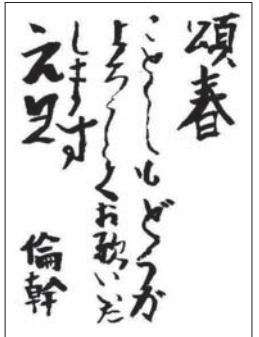 頌春
ことしもどうか
よろしくお願いいた
します
元旦
倫幹